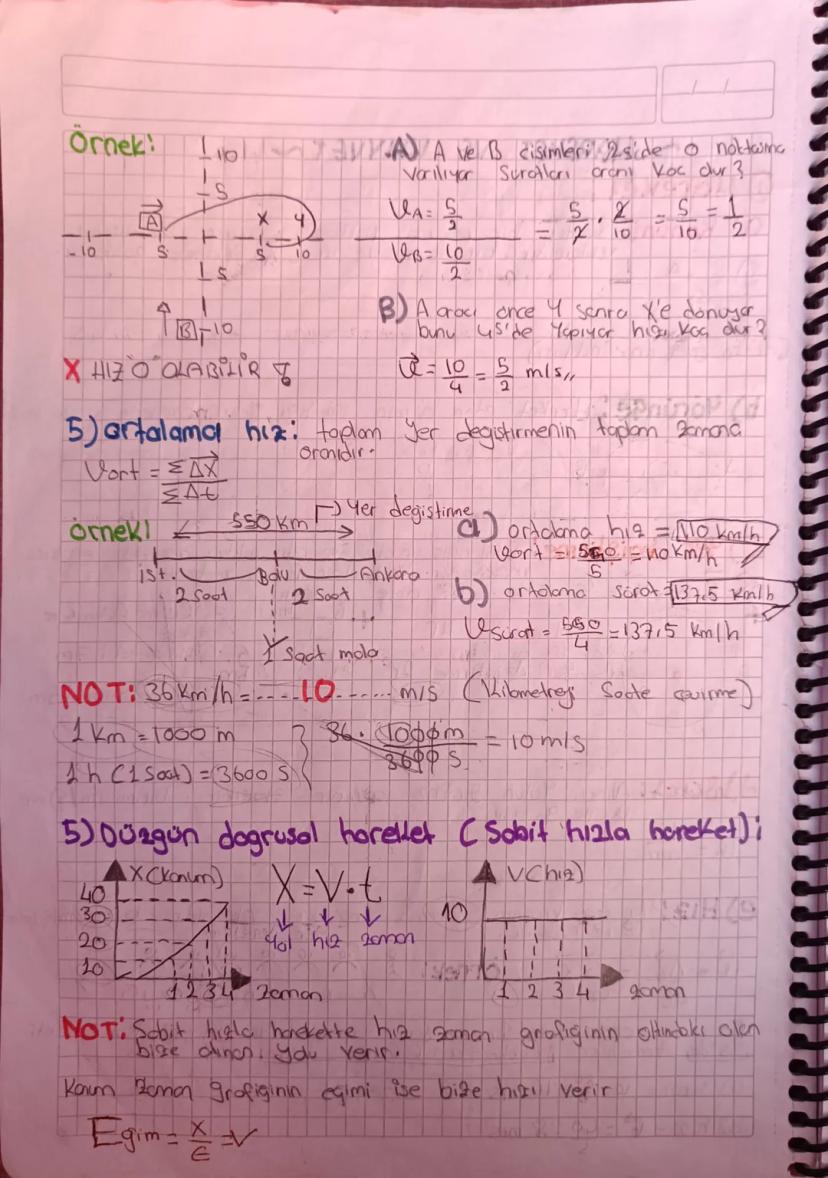 Örnek:
10
5
A
X Y
-10 5 5 10
5
B -10
A) A ve B cisimleri 2 s'de 0 noktasına
varılıyor Süratları oranı kaç dur?
VA = 5/2
VB = 10/2
= 5/2 . 2/10 = 5/10 = 1/2
B) A aracı önce Y sonra X'e dönüyor
bunu 4s'de Yapıyor hızı kaç dur?
V = 10/4 = 5/2 m/s,,
X HIZ "O" OLABİLİR
5) ortalama hız: toplam Yer degistirmenin toplam zamana
oranıdır.
Vort = ΣΔX/ΣΔt
Örnek!
550 km
Yer degistirme
ist. Bolu Ankara
2 Saat 2 Saat
1 Saat mola
a) ortalama hız = 110 km/h
Vort = 550/5 = 110 km/h
b) ortalama sürat = 137.5 km/h
Vsürat = 550/4 = 137,5 km/h
NOT: 36 km/h = ....10...... m/s (Kilometreyi Saate çevirme)
1 km = 1000 m
1 h (1 Saat) = 3600 S
36. 1000 m/3600 S = 10 m/s
5) Düzgün dogrusal hareket (Sabit hızla hareket):
X (Konum)
40
30
20
10
1 2 3 4 zaman
X = V.t
Yol hız zaman
V (hız)
10
1 2 3 4 zaman
NOT: Sabit hızla harekette hız zaman grafiginin altındaki alan
bize alınan Yolu verir.
Konum zaman grafiginin egimi ise bize hızı verir
Egim = X/t = V